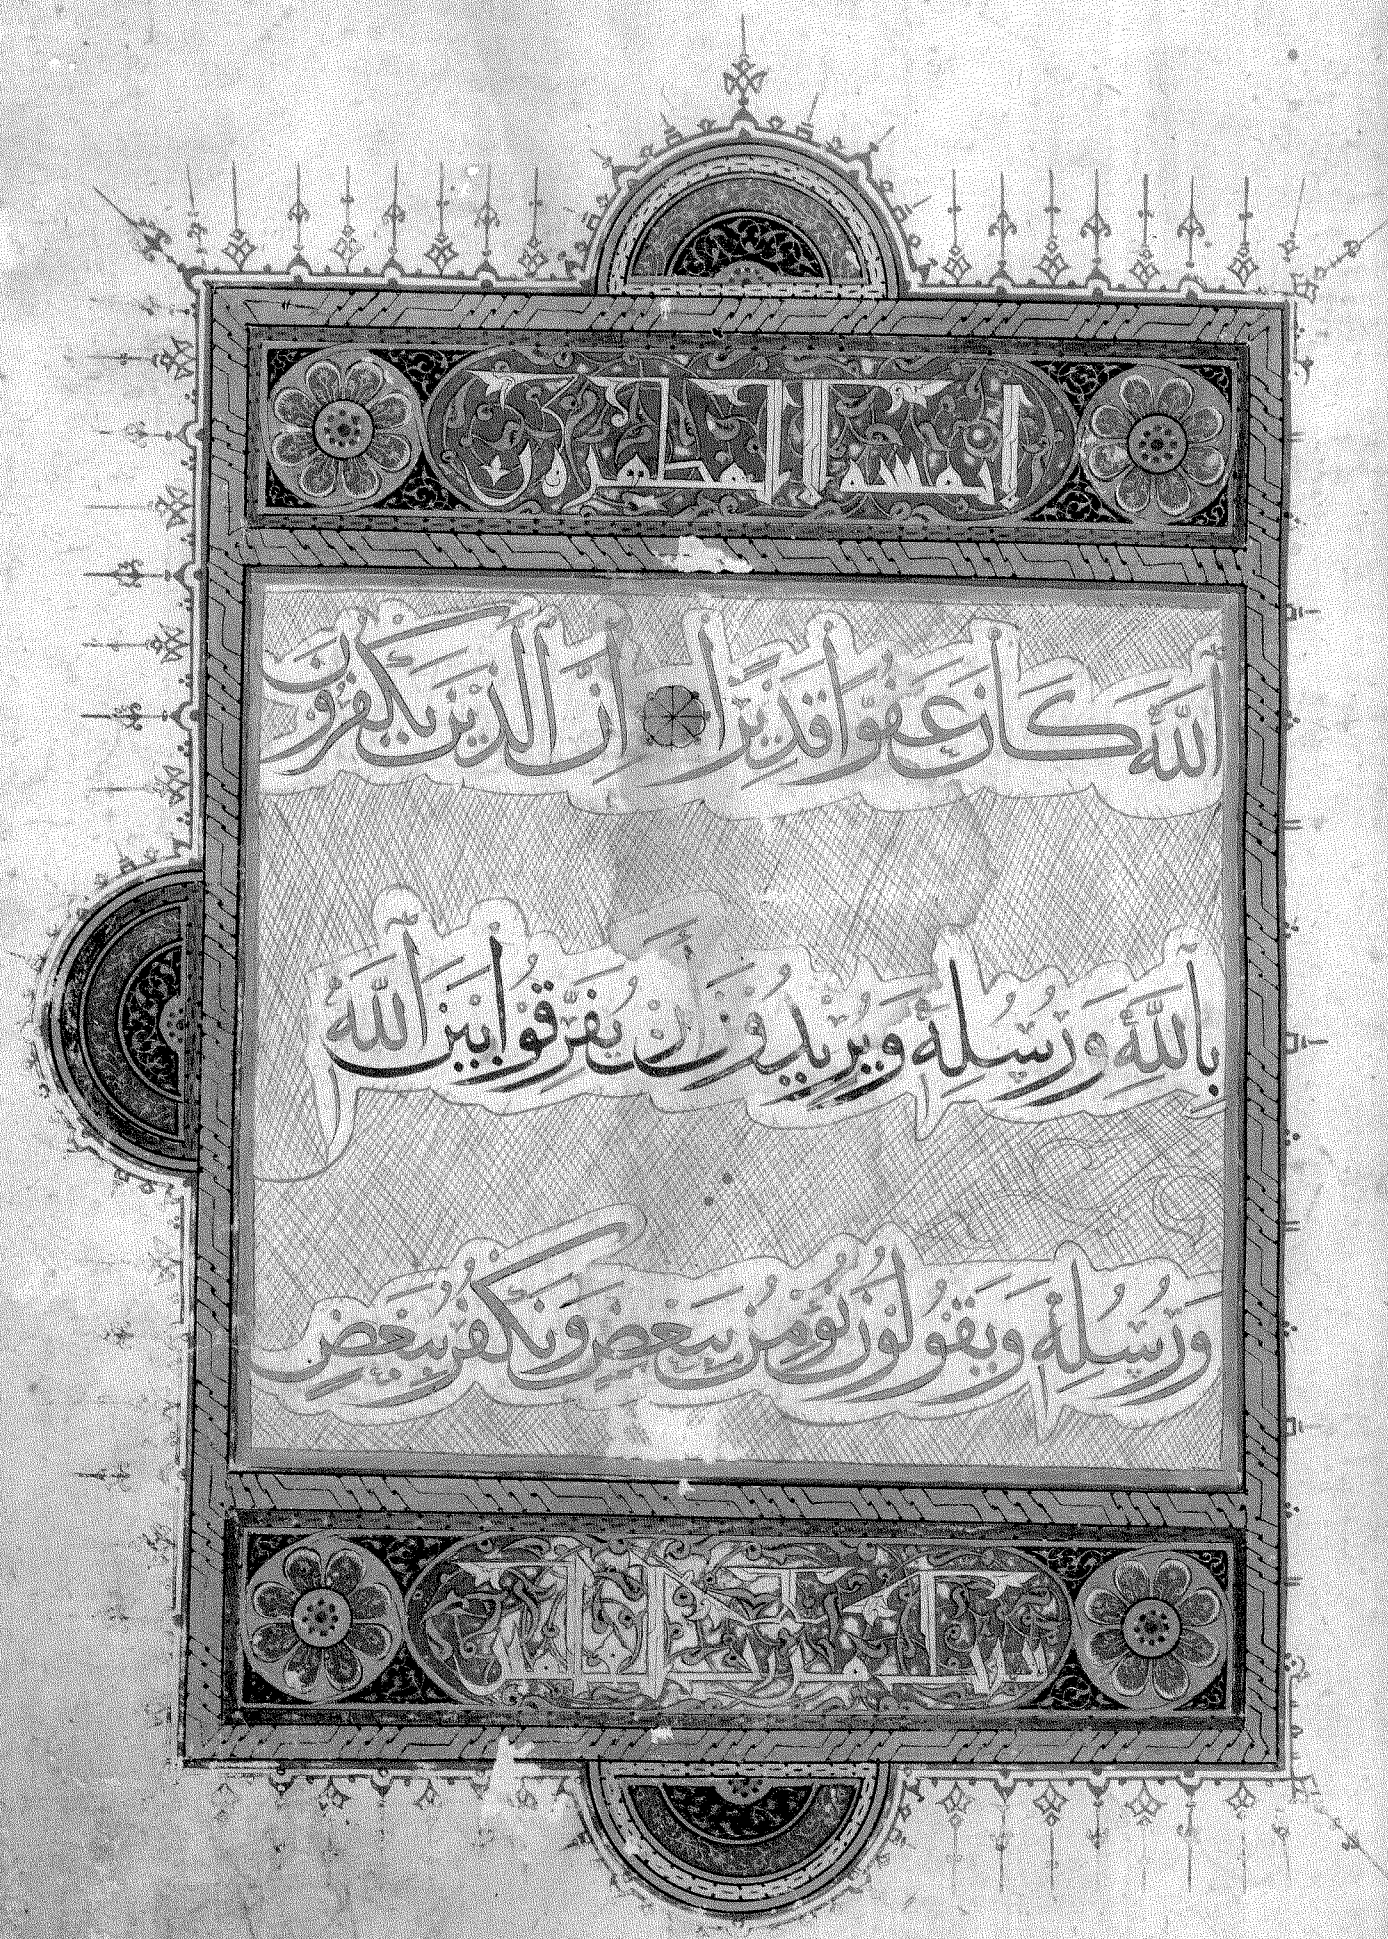 لا يمسه الا المطهرون
اللَّهَ كَانَ عَفُوًّا قَدِيرًا إِنَّ الَّذِينَ يَكْفُرُونَ
بِاللَّهِ وَرُسُلِهِ وَيُرِيدُونَ أَنْ يُفَرِّقُوا بَيْنَ اللَّهِ
وَرُسُلِهِ وَيَقُولُونَ نُؤْمِنُ بِبَعْضٍ وَنَكْفُرُ بِبَعْضٍ
تنزيل من رب العالمين